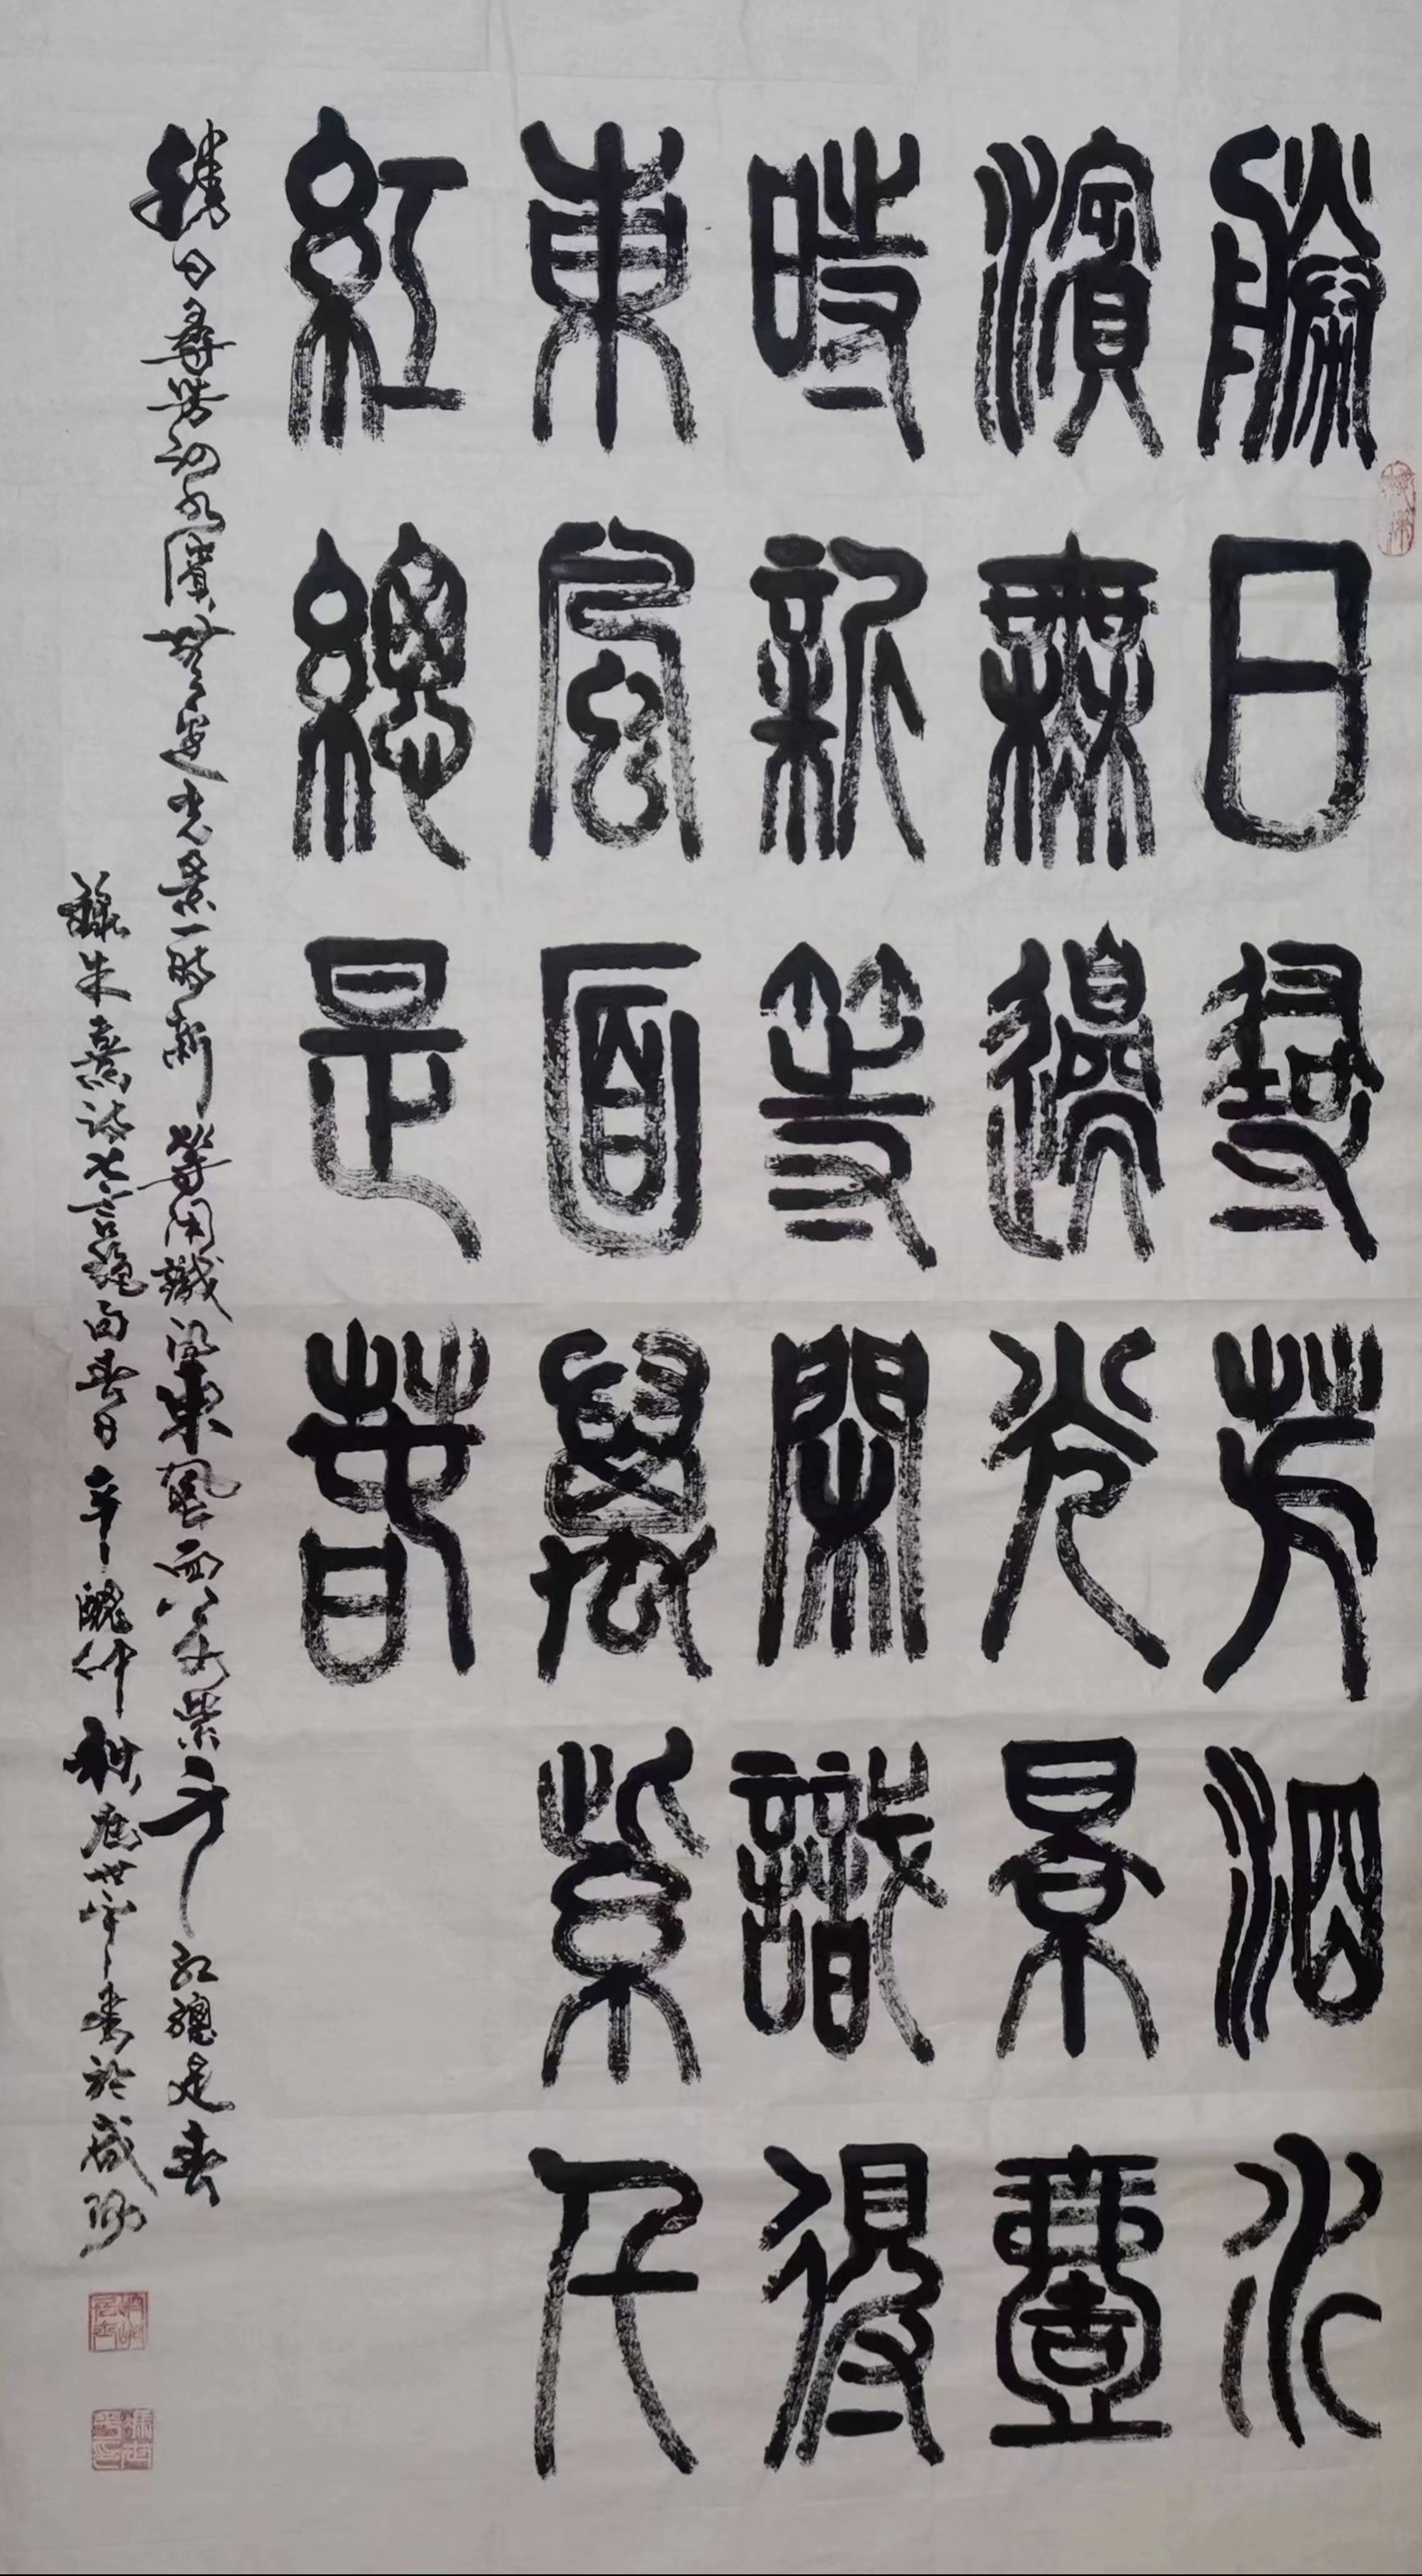 勝日尋芳泗水
濱無邊光景壹
時新等閒識得
東風面萬紫千
紅總是春
勝日尋芳泗水濱無邊光景一時新等閒識得東風面萬紫千紅總是春
錄朱熹詩七言絕句春日辛醜仲秋世平書於咸陽